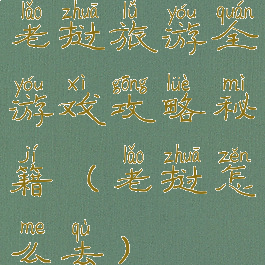 lǎo zhuā lǚ yóu quán
老挝旅游全
yóu xì gōng lüè mì
游戏攻略秘
jí lǎo zhuā zěn
籍（老挝怎
me qù
么去）